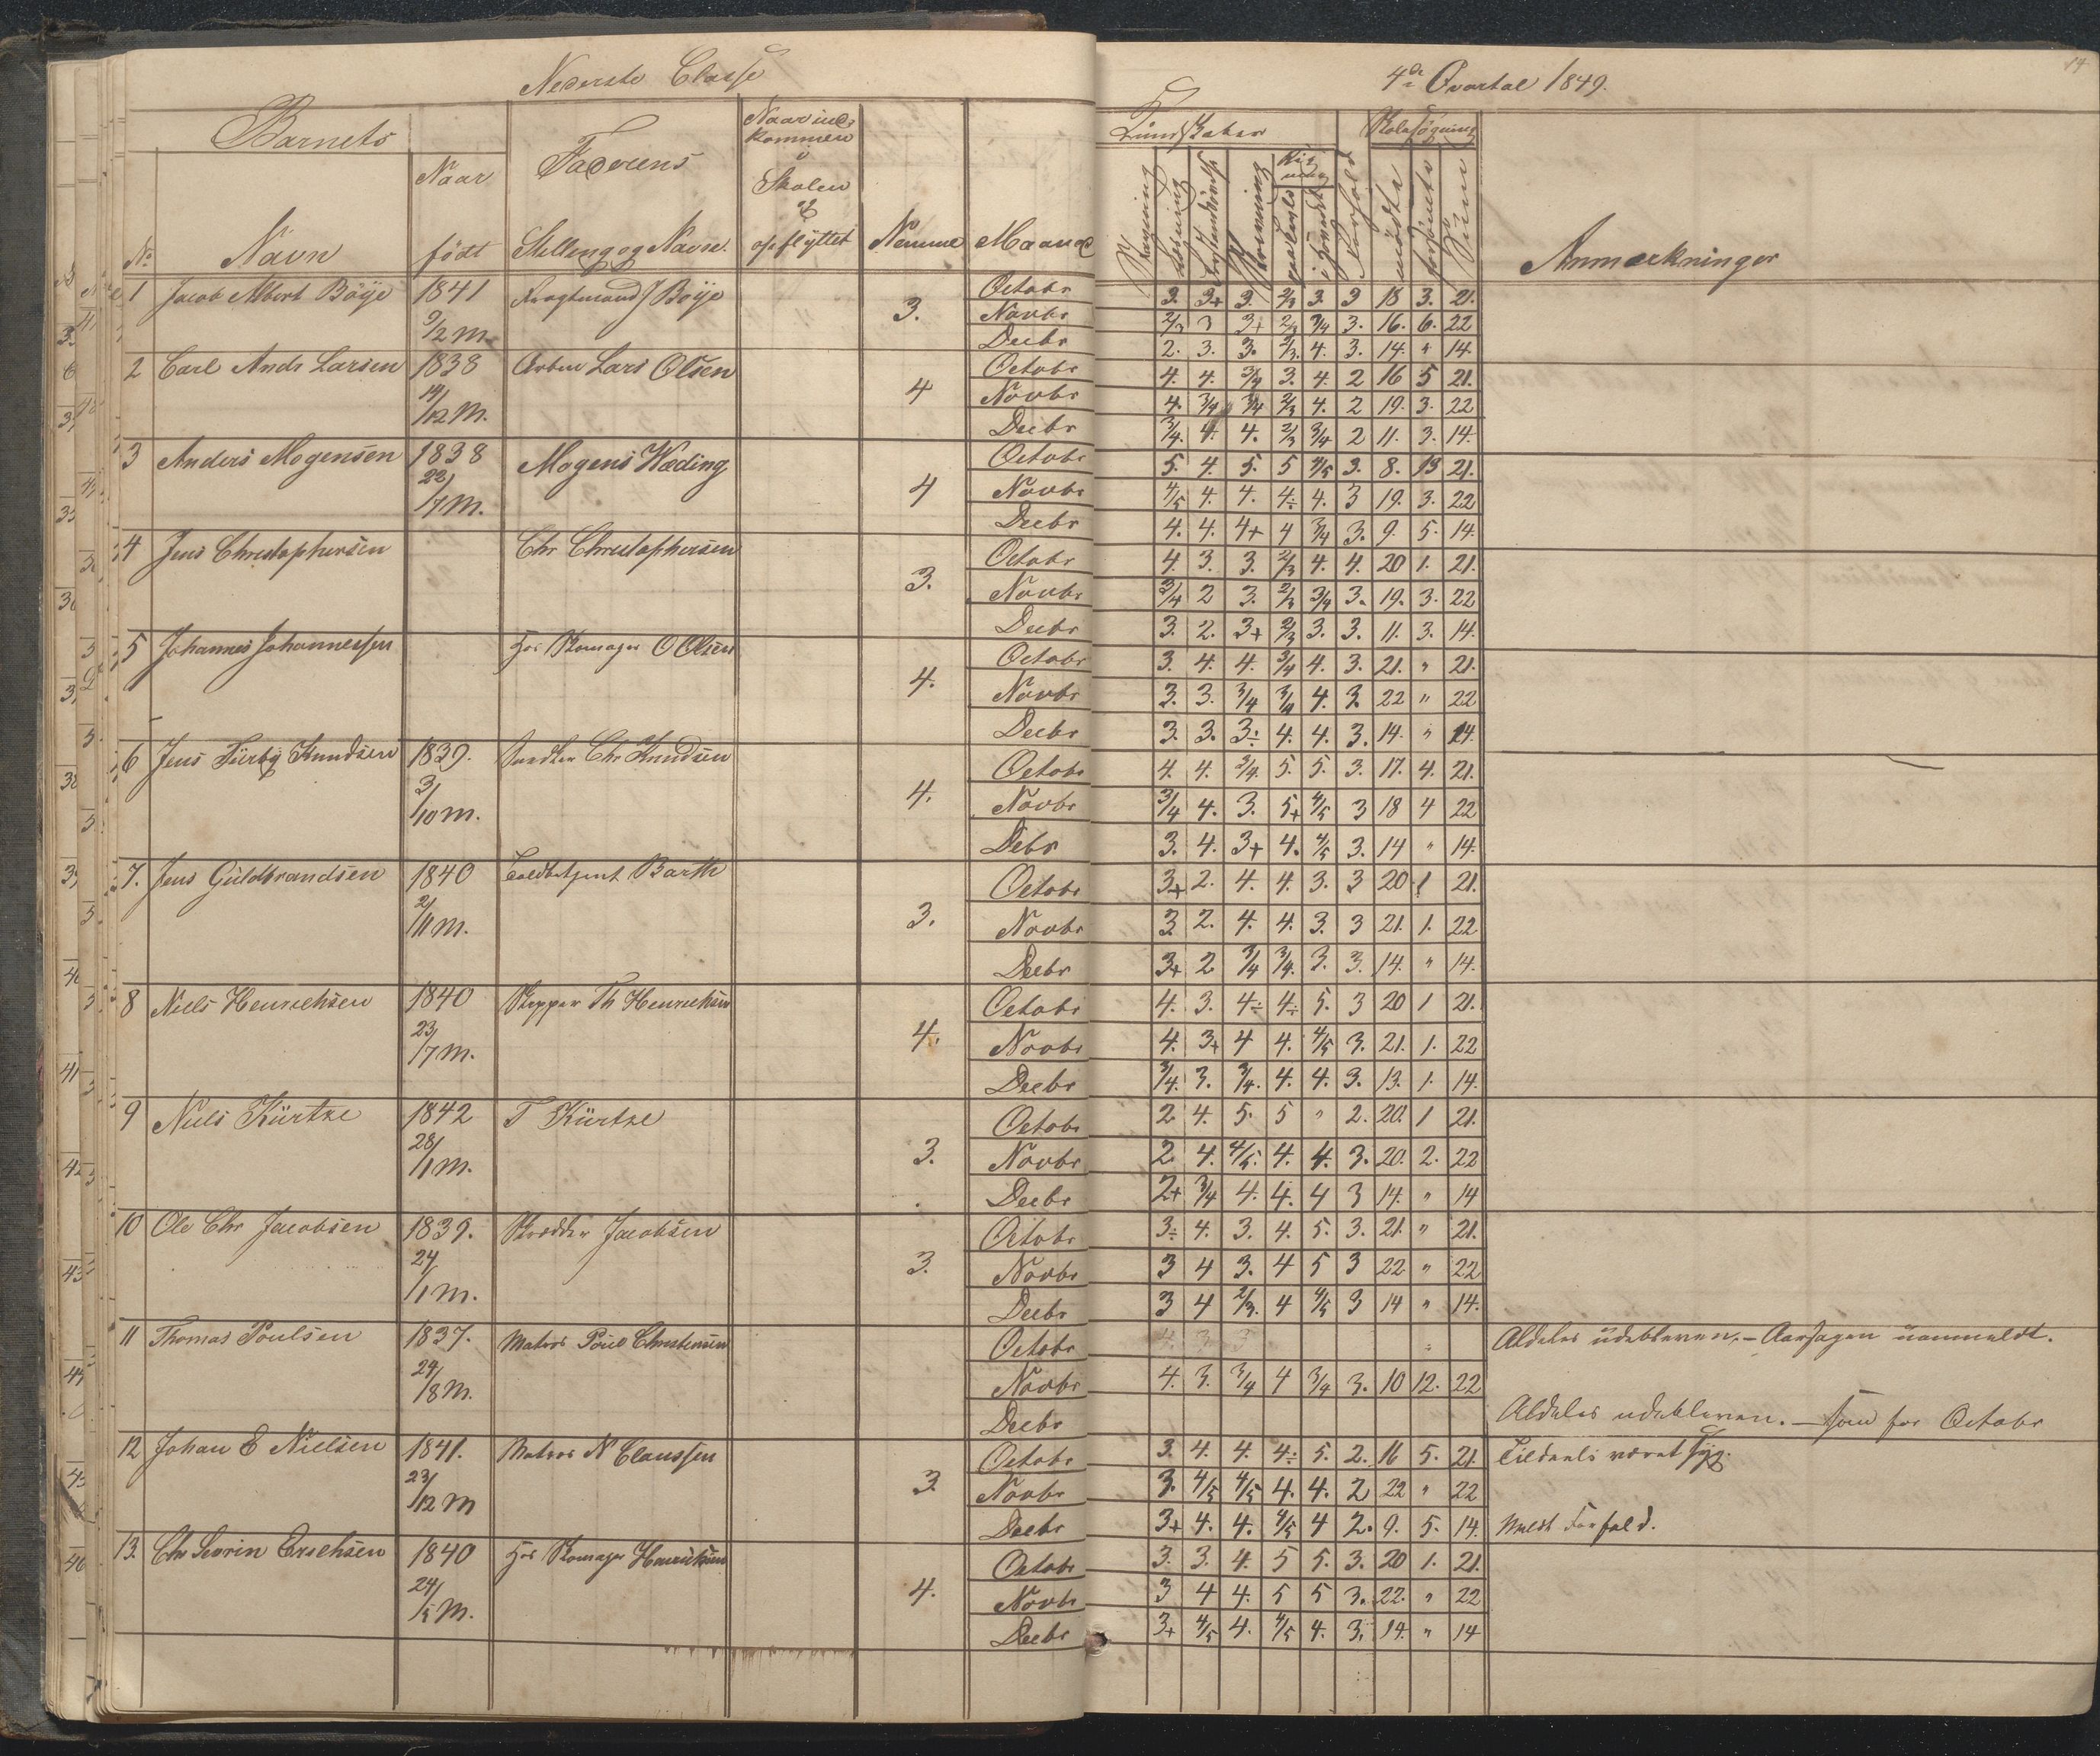 Nederste Classe
4de Qvartal 1849.
14
Barnets
Naar
Faderens
Naar ind-
kommen
i
Skolen
og
Kundskaber
Skolesøgning
No
Navn
født
Stilling og Navn.
opflyttet
Nemme
Maaned
Læsning
Skrivning
Regning
Forhold
mødte
forsømte
Sum
Anmærkninger
1 Jacob Albert Böÿe 1841 Fragtmand J Boÿe 3. Octobr 3. 3+ 3. 2/3 3. 3 18 3. 21.
9/2 m. Novbr 2/3 3 3+ 2/3 3/4 3. 16. 6. 22
Decbr 2. 3. 3. 2/3. 4. 3. 14. " 14.
2 Carl Andr Larsen 1838 Arbm Lars Olsen 4 Octobr 4. 4. 3/4 3. 4. 2 16 5 21.
14/12 M. Novbr 4. 3/4 3/4 2/3 4. 2 19. 3. 22
Decbr 3/4. 4. 4. 2/3 3/4 2 11. 3. 14.
3 Anders Mogensen 1838 Mogens Wæding 4 Octobr 5. 4. 5. 5 4/5 3. 8. 13 21.
22/7 m. Novbr 4/5 4. 4. 4÷ 4. 3 19. 3. 22
Decbr 4. 4. 4+ 4 3/4 3. 9. 5. 14.
4 Jens Christophersen Chr Christophersen 3. Octobr 4. 3. 3. 2/3 4. 4. 20 1. 21.
Novbr 3/4 2 3. 2/3 3/4 3. 19. 3. 22
Decbr 3. 2. 3+ 2/3 3. 3. 11. 3. 14.
5 Johannes Johannessen hos Skomager O Olsen 4. Octobr 3. 4. 4. 3/4 4. 3. 21. " 21.
Novbr 3. 3. 3/4 3/4 4. 3. 22 " 22
Decbr 3. 3. 3÷ 4. 4. 3. 14. " 14.
6 Jens Türbÿ Knudsen 1839. Snedker Chr Knudsen 4. Octobr 4. 4. 3/4. 5. 5. 3. 17. 4. 21.
3/10 m. Novbr 3/4 4. 3. 5+ 4/5 3 18 4 22
Debr 3. 4. 3+ 4. 4/5 3. 14 " 14.
7. Jens Güldbrandsen 1840 Toldbetjent Barth 3. Octobr 3+ 2. 4. 4. 3. 3 20 1 21.
2/11 m. Novbr 3 2. 4. 4. 3. 3 21. 1. 22
Decbr 3+ 2 3/4 3/4. 3. 3. 14. " 14.
8 Niels Henrichsen 1840 Skipper Th Henrichsen 4. Octobr 4. 3. 4÷ 4÷ 5. 3 20 1 21.
23/7 m. Novbr 4. 3+ 4 4. 4/5 3. 21. 1. 22
Decbr 3/4. 3. 3/4. 4. 4. 3. 13. 1. 14.
9 Niels Kürtze 1842 T Kürtze 3. Octobr 2 4. 5. 5 " 2. 20. 1 21.
28/1 m. Novbr 2. 4. 4/5. 4. 4. 3. 20. 2. 22
Decbr 2+ 3/4 4. 4. 4 3 14. " 14
10 Ole Chr Jacobsen 1839. Skrædder Jacobsen 3. Octobr 3÷ 4. 3. 4. 5. 3. 21. " 21.
24/1 m. Novbr 3 4 3. 4 5 3 22 " 22
Decbr 3 4 2/3. 4 4/5 3 14 " 14.
11 Thomas Poulsen 1837. Matros Poul Christensen Octobr Aldeles udebleven. – Aarsagen uanmeldt.
29/8 m. Novbr 4. 3. 3/4 4 3/4 3. 10 12. 22
Decbr Aldeles udebleven. – som for Octobr
12 Johan E Nielsen 1841. Matros N Claussen 3. Octobr 3. 4. 4. 4÷ 5. 2. 16 5. 21. Tildeels været syg.
23/12 m Novbr 3. 4/5 4/5 4. 4. 2 22 " 22
Decbr 3+ 4. 4. 4/5 4 2. 9. 5. 14. Meldt Forfald.
13. Chr Severin Erichsen 1840 hos Skomager Henrichsen 4. Octobr 3. 3. 4. 5 5. 3. 20 1. 21.
24/5 m. Novbr 3 4 4. 5 5 3. 22. " 22
Decbr 3+ 4/5 4. 4/5 4. 3. 14. " 14